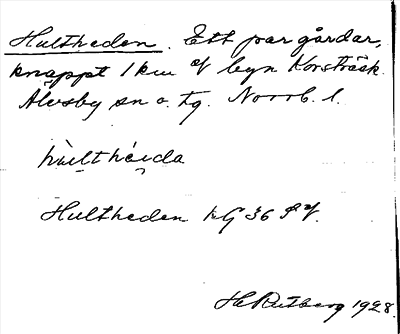 Hultheden. Ett par gårdar,
knappt 1 km af byn Korsträsk.
Älvsby sn o. tg. Norrb. l.
hùlthéida
Hultheden kG 36
H Rutberg 1928.